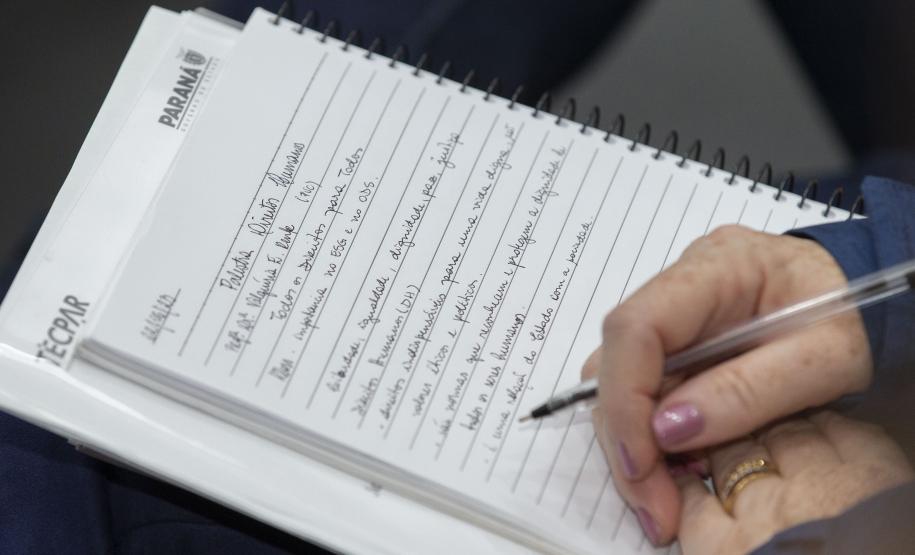 PARANÁ
GOVERNO DO ESTADO
TECPAR
Palestra Direitos Humanos
Prof. Dra. Valquiria E. Renk (PUC)
Todos os Direitos para Todos
importância no ESG e no ODS.
liberdade, igualdade, dignidade, paz, justiça
Direitos Humanos (DH)
. direitos indispensáveis para uma vida digna,
valores éticos e políticos.
. são normas que reconhecem e protegem a dignidade de
todos os seres humanos.
. é uma relação do Estado com a sociedade.